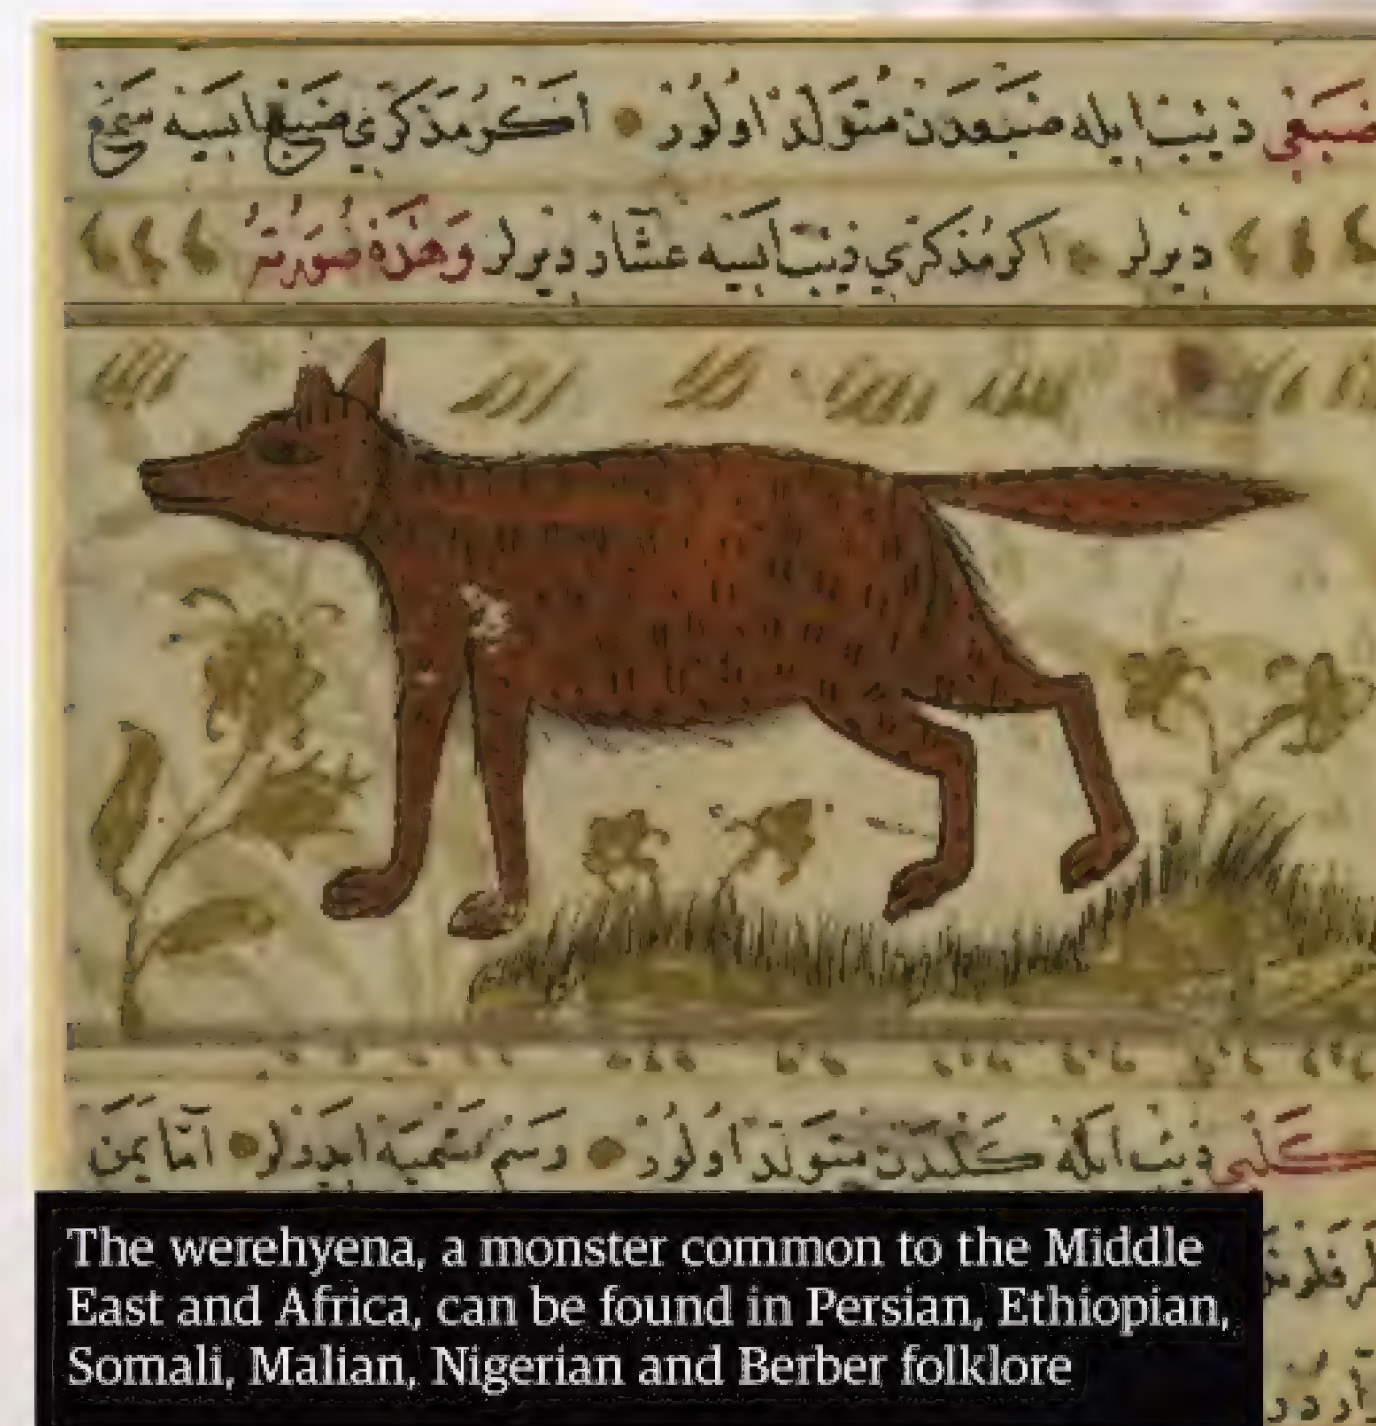 ضبغى ذيب ايله ضبعدن متولد اولور اكر مذكرى ضبع ايسه سمع
ديرلر اكر مذكرى ذيب ايسه عشار ديرلر وهذه صورته
كلبى ذيب ايله كلبدن متولد اولور وسم تسميه ايدرلر اما يمن
The werehyena, a monster common to the Middle
East and Africa, can be found in Persian, Ethiopian,
Somali, Malian, Nigerian and Berber folklore